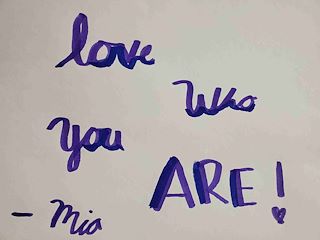 love
Who
You
ARE!
- Mia